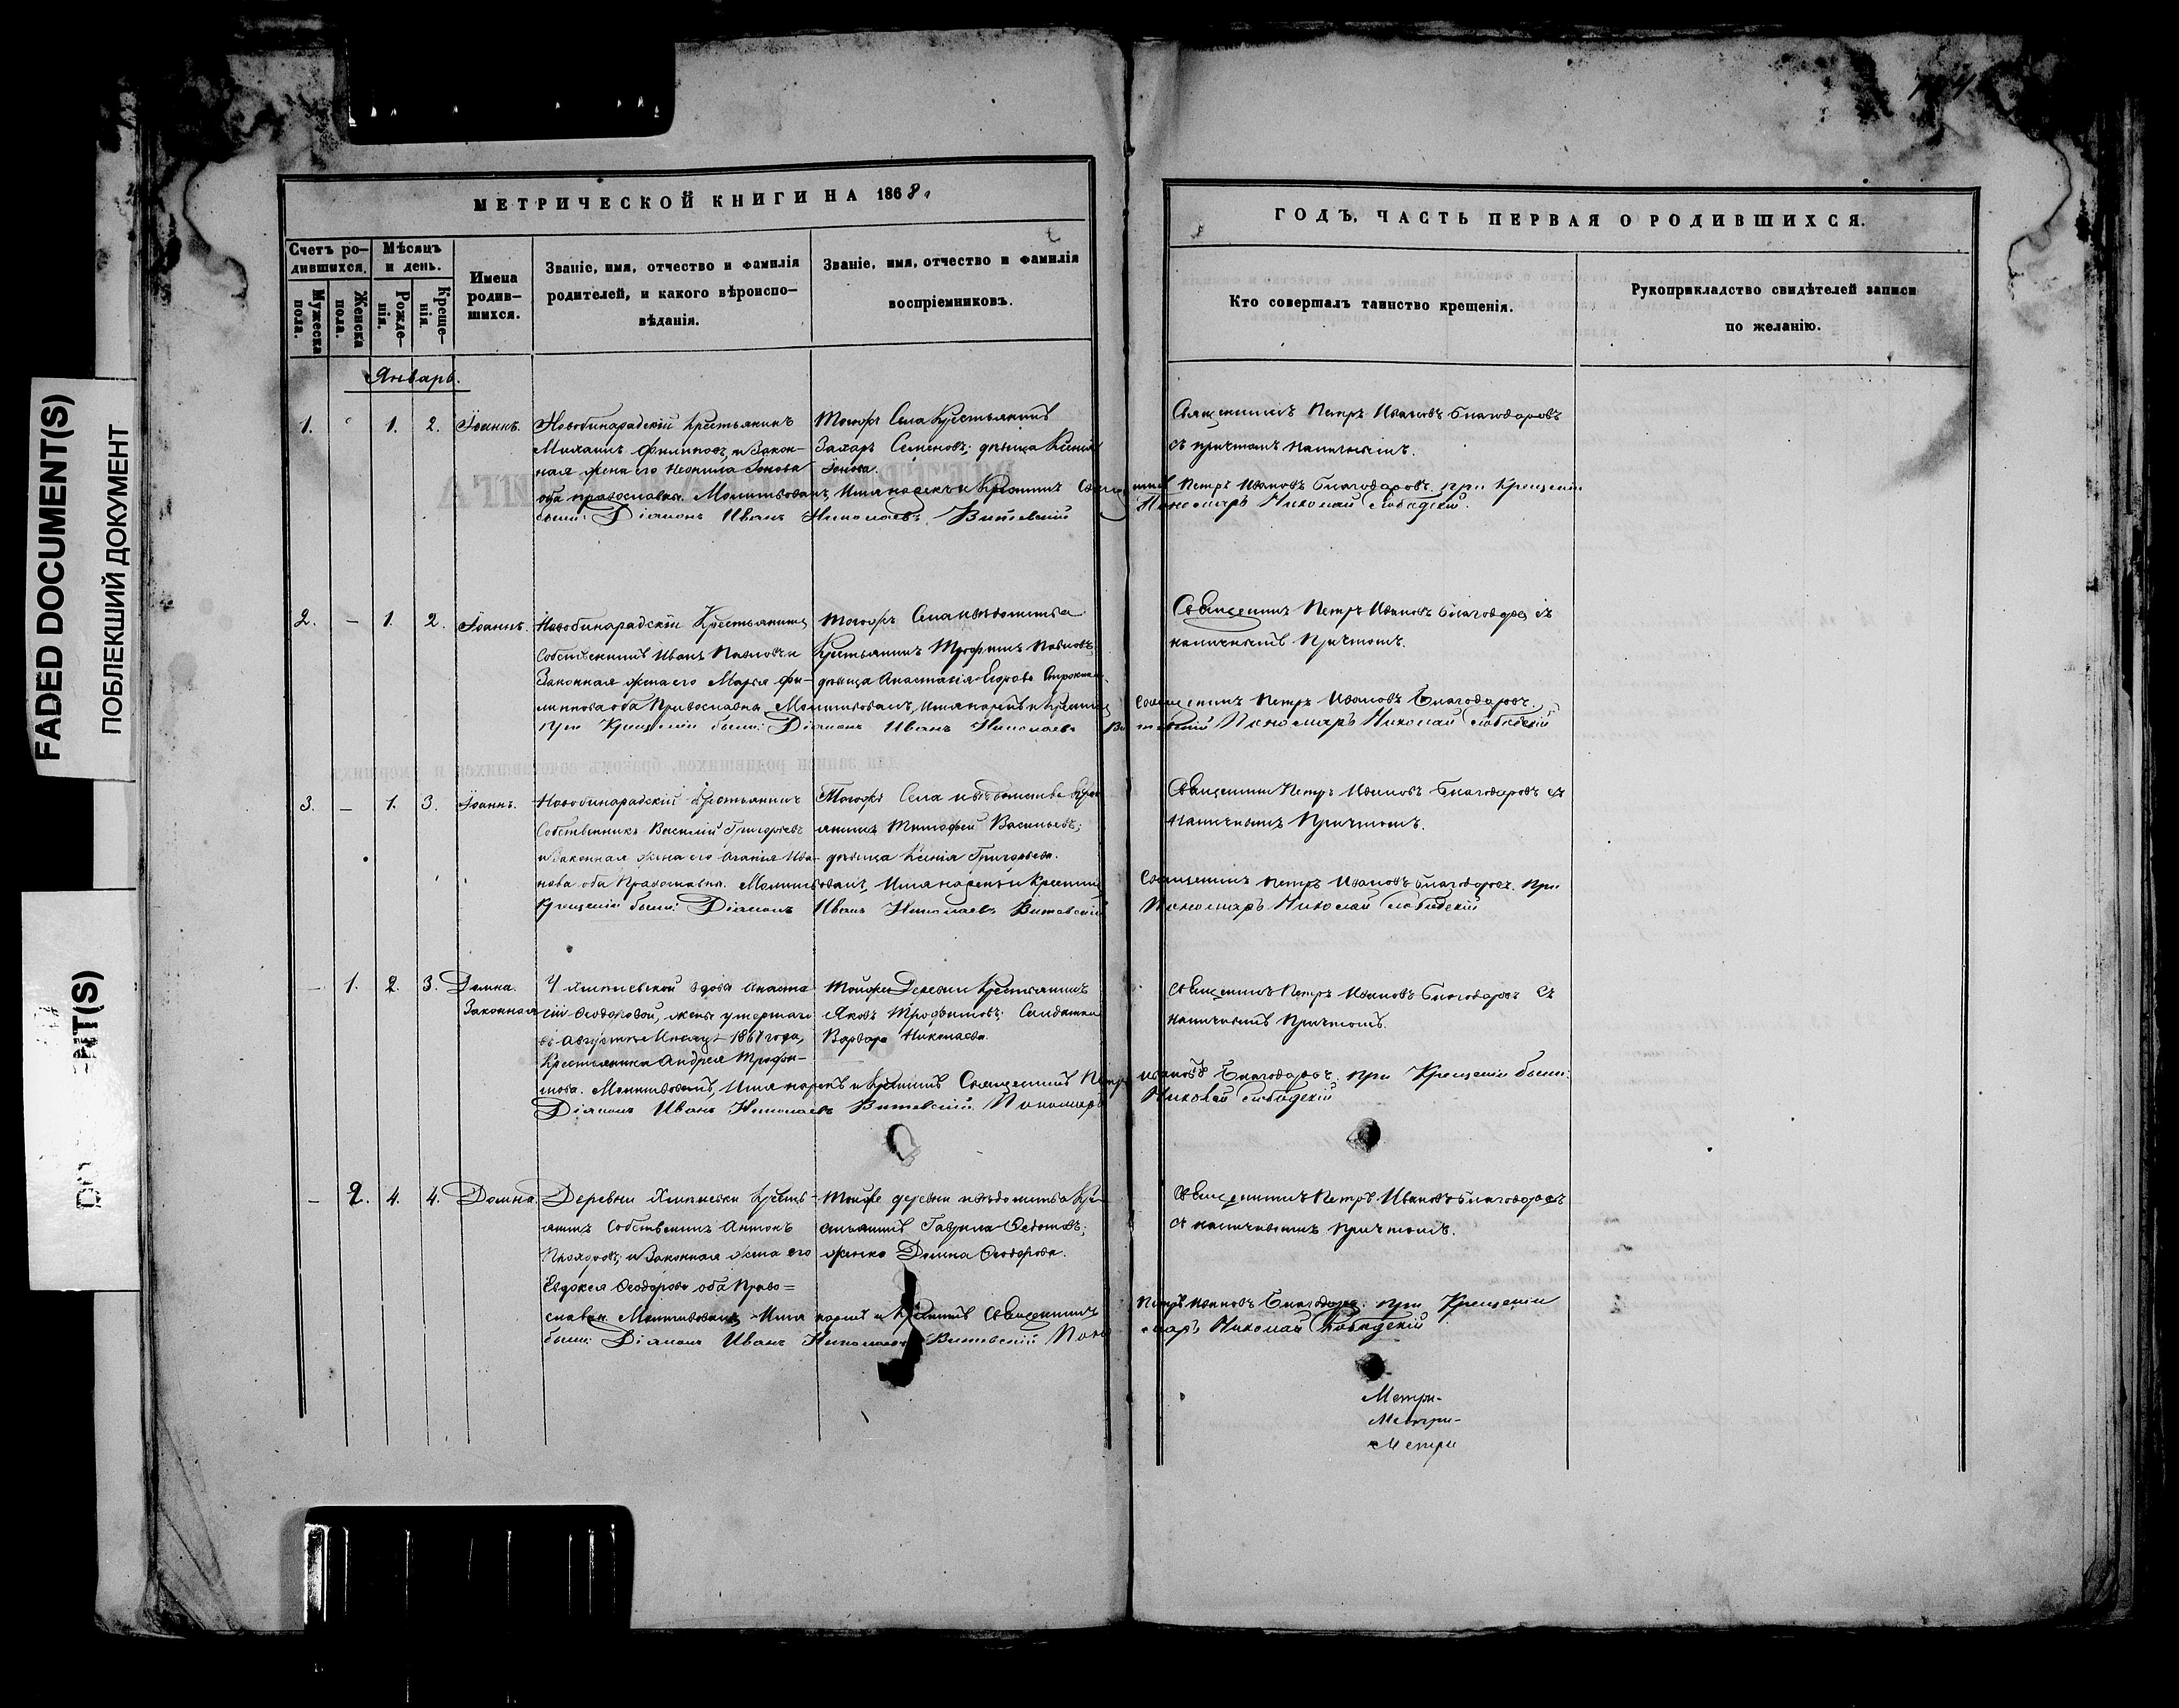 FADED DOCUMENT(S)
ПОБЛЕКШИЙ ДОКУМЕНТ
МЕТРИЧЕСКОЙ КНИГИ НА 1868
Счетъ ро-
дившихся.
Мужеска пола.
Женска пола.
Мѣсяцъ
и день.
Рожде-
нія.
Креще-
нія.
Имена
родив-
шихся.
Званіе, имя, отчество и фамилія
родителей, и какого вѣроиспо-
вѣданія.
Званіе, имя, отчество и фамилія
воспріемниковъ.
ГОДЪ, ЧАСТЬ ПЕРВАЯ О РОДИВШИХСЯ.
Кто совершалъ таинство крещенія.
Рукоприкладство свидѣтелей записи
по желанію.
Январь.
1. 1. 2. Іоаннъ.
Новобинарадскій Крестьянинъ
Михаилъ Филиповъ, и Закон-
ная жена его Неонила Іонова
оба православны. Молитвовалъ Имя нарекъ и Крестилъ
были: Діаконъ Иванъ Николаевъ Витевскій
Тогожъ Села Крестьянинъ
Захаръ Семеновъ; дѣвица Ксенія
Іонова.
Священникъ Петръ Ивановъ Благодаровъ
съ причтомъ наличнымъ.
Петръ Ивановъ Благодаровъ при Крещеніи
Пономарь Николай
2. – 1. 2. Іоаннъ.
Новобинарадскій Крестьянинъ
Собственникъ Иванъ Павловъ и
Законная жена его Марья Фи-
липпова оба Православны. Молитвовалъ, имя нарекъ и Крестилъ
при Крещеніи были: Діаконъ Иванъ Николаевъ
Тогожъ Села и вѣдомства
Крестьянинъ Трофимъ Павловъ;
дѣвица Анастасія Егорова
Священникъ Петръ Ивановъ Благодаровъ съ
наличнымъ Причтомъ.
Священникъ Петръ Ивановъ Благодаровъ.
Витевскій Пономарь Николай
3. – 1. 3. Іоаннъ.
Новобинарадскій Крестьянинъ
Собственникъ Василій Григорьевъ
и Законная жена его Агапія Ива-
нова оба Православны. Молитвовалъ, Имя нарекъ и Крестилъ
Крещеніи были: Діаконъ Иванъ Николаевъ Витевскій
Тогожъ Села и вѣдомства Крес-
янинъ Тимофей Васильевъ;
дѣвица Ксенія Григорьева.
Священникъ Петръ Ивановъ Благодаровъ съ
наличнымъ Причтомъ.
Священникъ Петръ Ивановъ Благодаровъ. При
Пономарь Николай
– 1. 2. 3. Домна.
Законная
вдова Анаста-
сіи Феодоровой, жены умершаго
въ Августѣ 1867 года,
Крестьянина Андрея Трофи-
мова. Молитвовалъ, Имя нарекъ и Крестилъ Священникъ Петръ
Діаконъ Иванъ Николаевъ Витевскій Пономарь
Тойже Деревни Крестьянинъ
Яковъ Трофимовъ; Солдатка
Варвара Николаева.
Священникъ Петръ Ивановъ Благодаровъ съ
наличнымъ Причтомъ.
Ивановъ Благодаровъ. при Крещеніи были:
Николай
– 2. 4. 4. Домна.
Деревни Кресть-
янинъ Собственникъ Антонъ
Прохоровъ, и Законная жена его
Евдокея Феодорова оба Право-
славны. Молитвовалъ, Имя нарекъ и Крестилъ Священникъ
были: Діаконъ Иванъ Николаевъ Витевскій Поно-
Тойже деревни и вѣдомства Кре-
стьянинъ Гаврила Федотовъ;
женка Домна Феодорова.
Священникъ Петръ Ивановъ Благодаровъ
съ наличнымъ причтомъ.
Петръ Ивановъ Благодаровъ. при Крещеніи
марь Николай
Метри-
Метри-
Метри